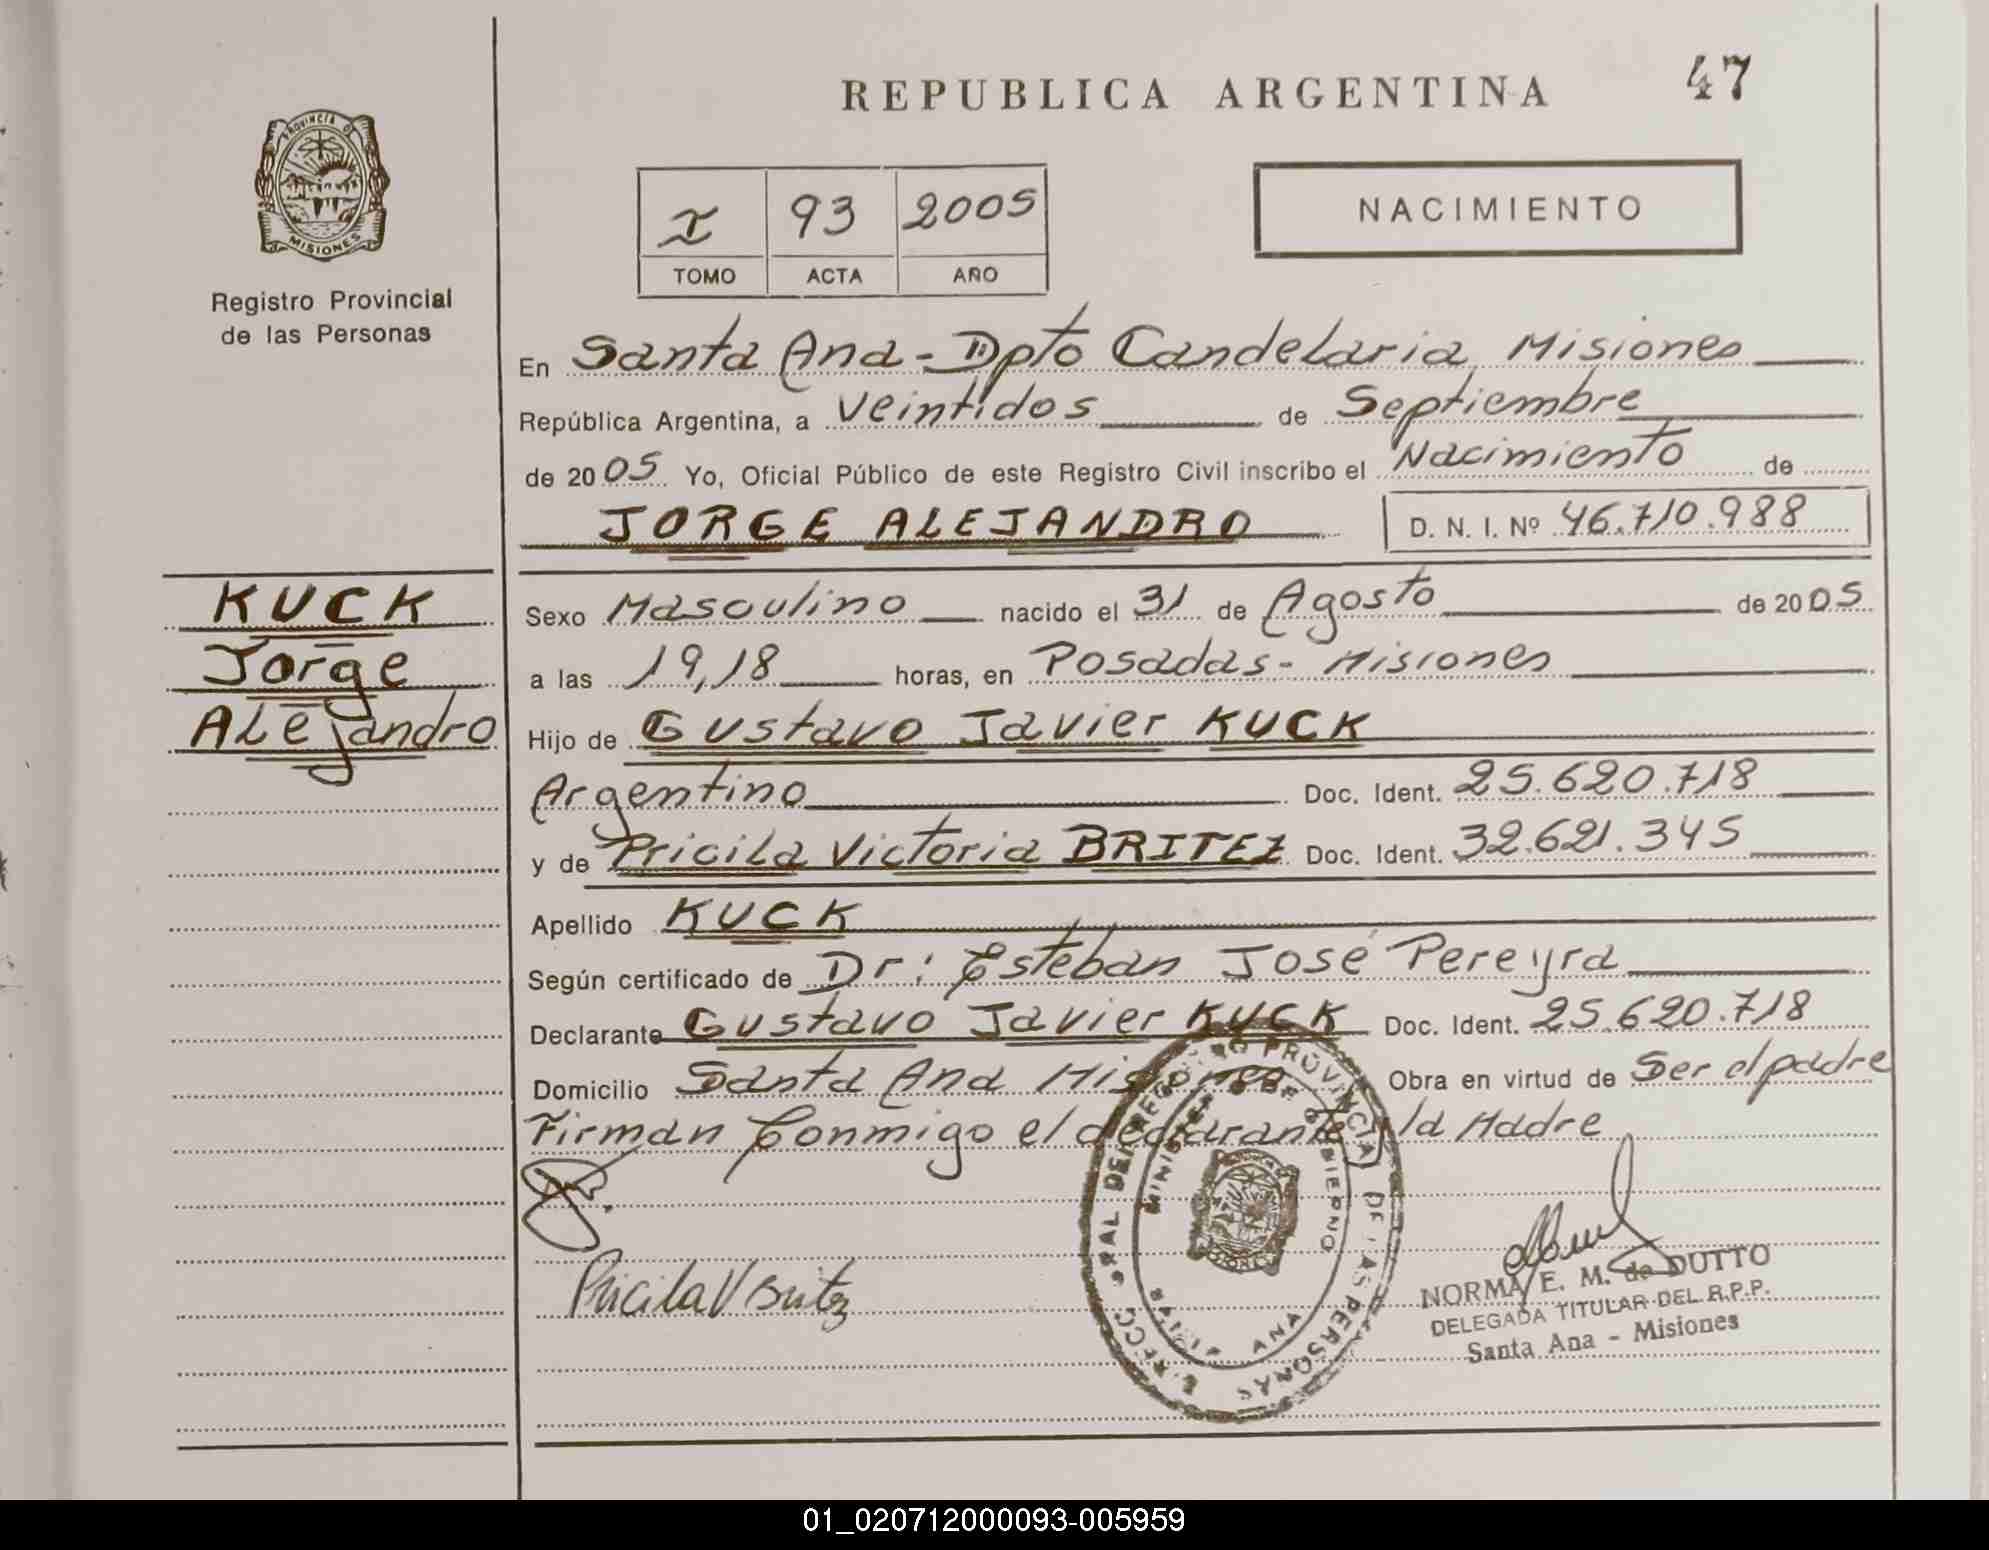 REPUBLICA ARGENTINA
47
PROVINCIA DE
MISIONES
Registro Provincial
de las Personas
I 93 2005
TOMO ACTA AÑO
NACIMIENTO
En Santa Ana - Dpto Candelaria Misiones
República Argentina, a veintidos de Septiembre
de 2005 Yo, Oficial Público de este Registro Civil inscribo el Nacimiento de
JORGE ALEJANDRO D. N. I. Nº 46.710.988
KUCK
Jorge
Alejandro
Sexo Masculino nacido el 31 de Agosto de 2005
a las 19,18 horas, en Posadas - Misiones
Hijo de Gustavo Javier KUCK
Argentino Doc. Ident. 25.620.718
y de Pricila Victoria BRITEZ Doc. Ident. 32.621.345
Apellido KUCK
Según certificado de Dr: Esteban José Pereyra
Declarante Gustavo Javier KUCK Doc. Ident. 25.620.718
Domicilio Santa Ana Misiones Obra en virtud de Ser el padre
Firman Conmigo el declarante y la Madre
Pricila V Britez
PROVINCIAL DE LAS PERSONAS
MINISTERIO DE GOBIERNO
ANA
NORMA E. M. de DUTTO
DELEGADA TITULAR DEL R.P.P.
Santa Ana - Misiones
01_020712000093-005959